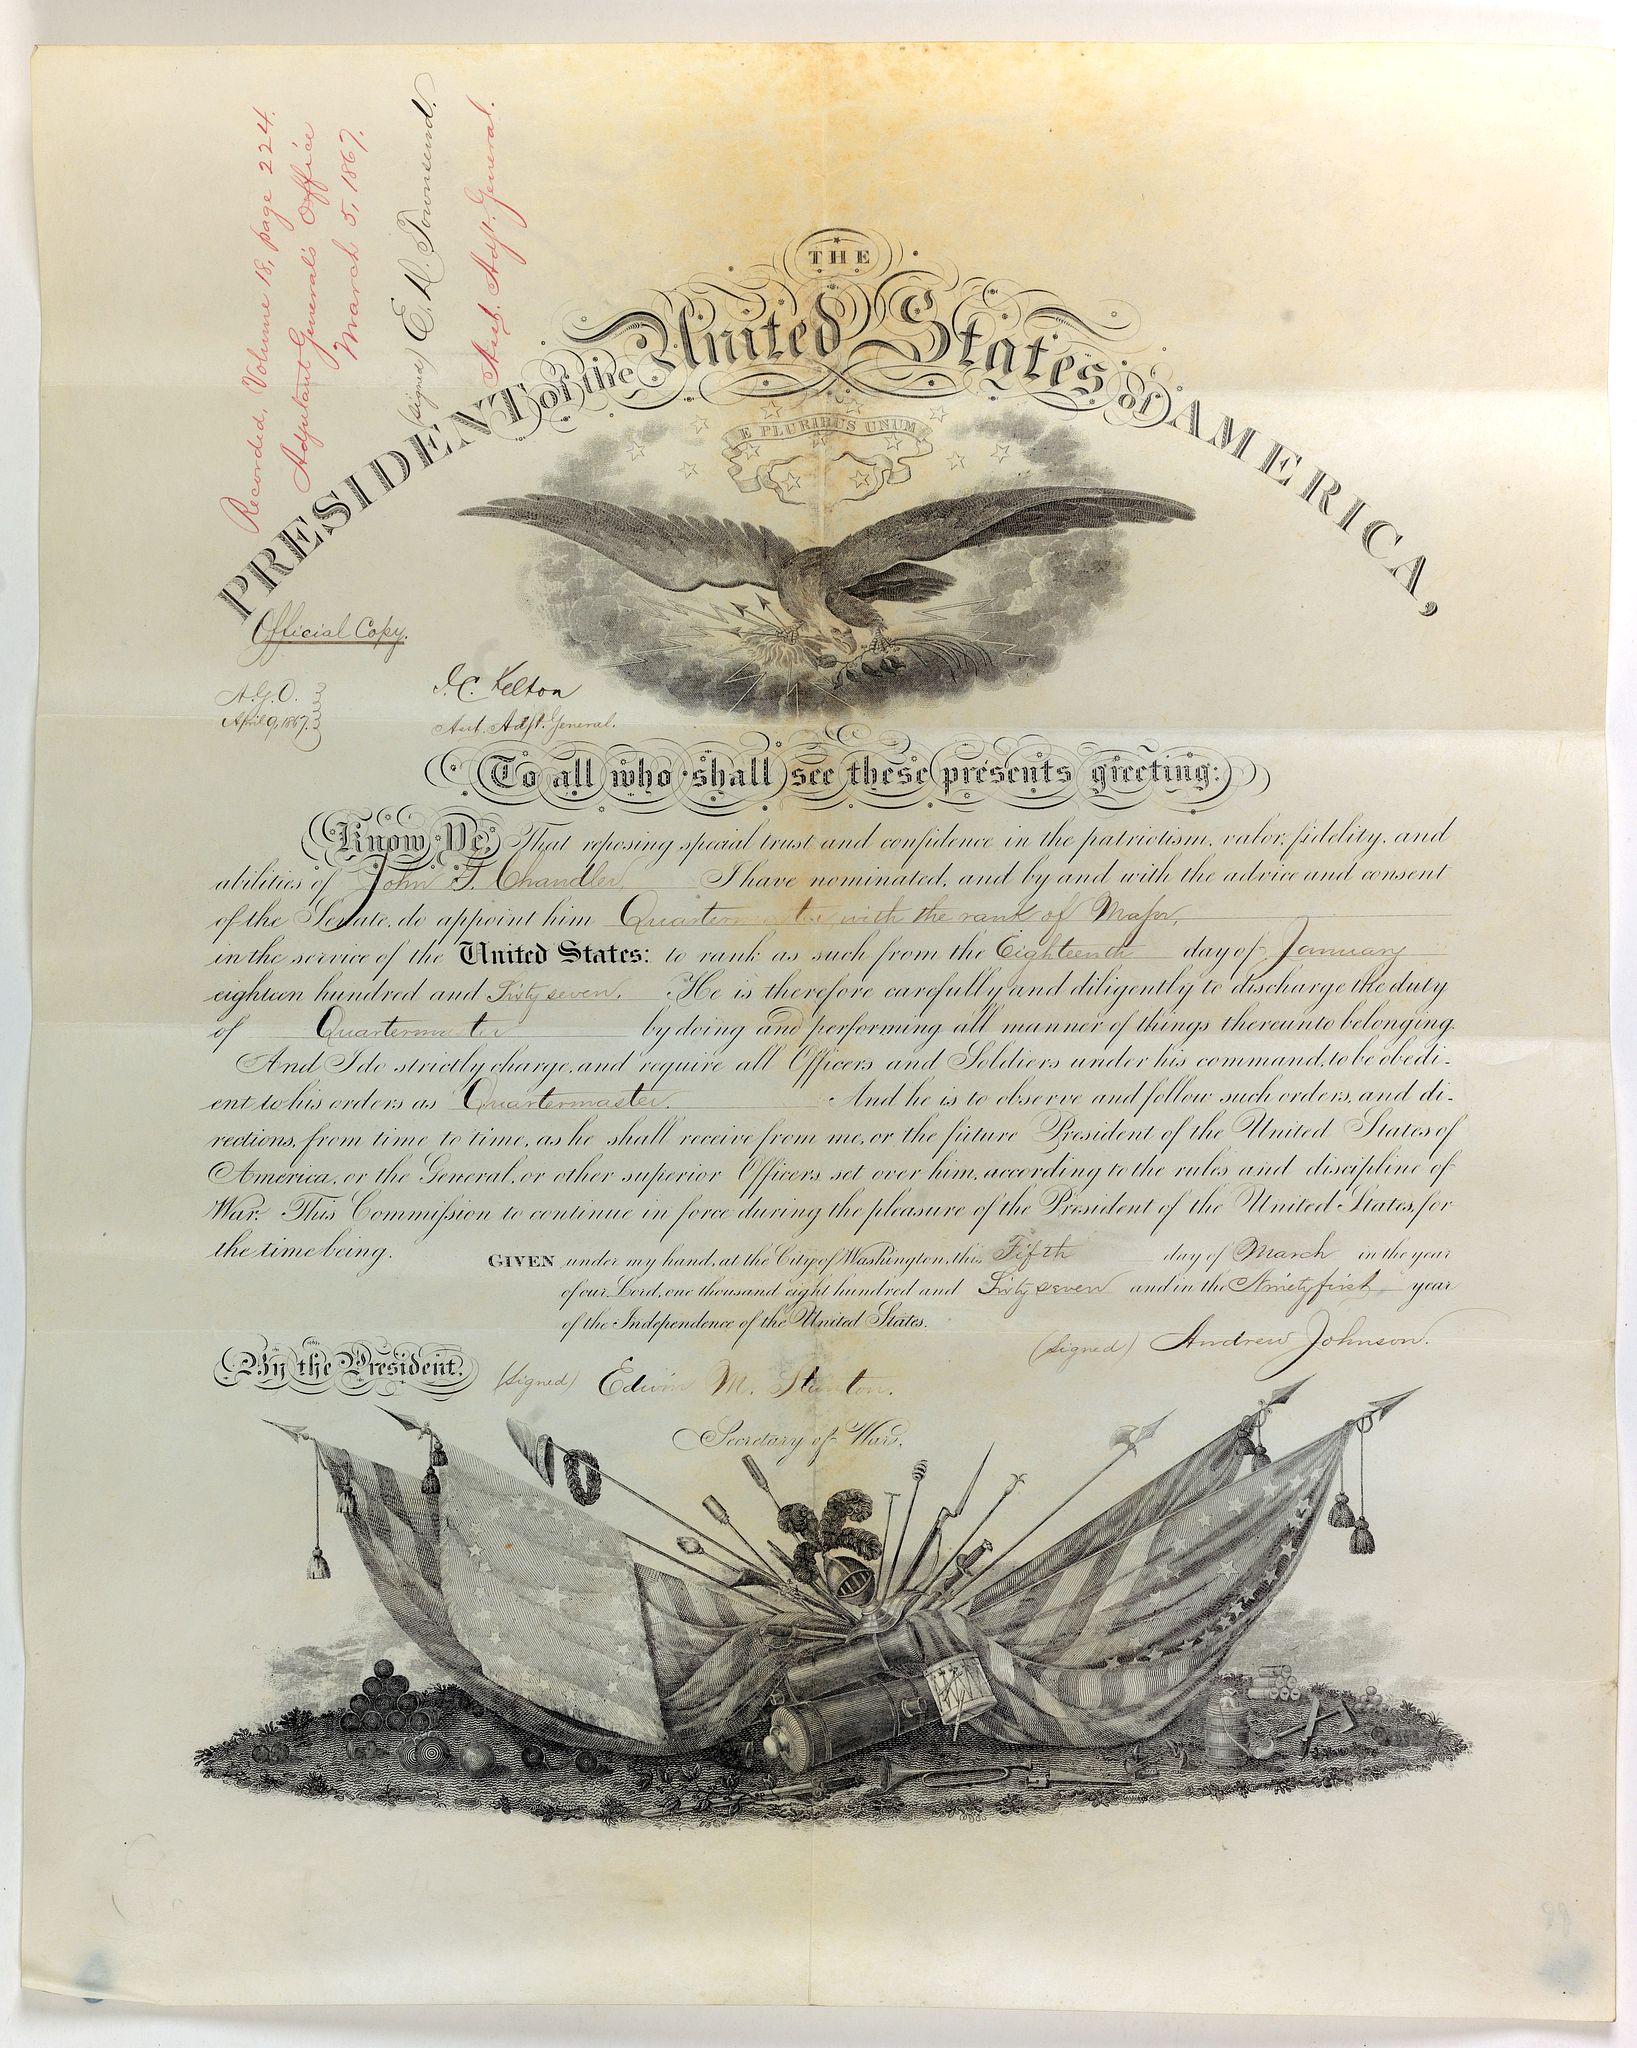 Recorded, Volume 18, page 224.
Adjutant General's Office
March 5, 1867.
(signed) E. D. Townsend.
Asst. Adjt. General.
THE
PRESIDENT of the United States of AMERICA,
E PLURIBUS UNUM
Official Copy.
A.G.O.
April 9, 1867.
J.C. Kelton
Asst. Adjt. General.
To all who shall see these presents greeting:
Know Ye, That reposing special trust and confidence in the patriotism, valor, fidelity, and
abilities of John G. Chandler, I have nominated, and by and with the advice and consent
of the Senate, do appoint him Quartermaster, with the rank of Major,
in the service of the United States: to rank as such from the Eighteenth day of January
eighteen hundred and Sixty seven. He is therefore carefully and diligently to discharge the duty
of Quartermaster by doing and performing all manner of things thereunto belonging.
And I do strictly charge, and require all Officers and Soldiers under his command, to be obedi-
ent to his orders as Quartermaster. And he is to observe and follow such orders, and di-
rections, from time to time, as he shall receive from me, or the future President of the United States of
America, or the General, or other superior Officers set over him, according to the rules and discipline of
War. This Commission to continue in force during the pleasure of the President of the United States, for
the time being.
GIVEN under my hand, at the City of Washington, this Fifth day of March in the year
of our Lord, one thousand eight hundred and Sixty seven and in the Ninety first year
of the Independence of the United States.
(signed) Andrew Johnson.
By the President.
(signed) Edwin M. Stanton.
Secretary of War.